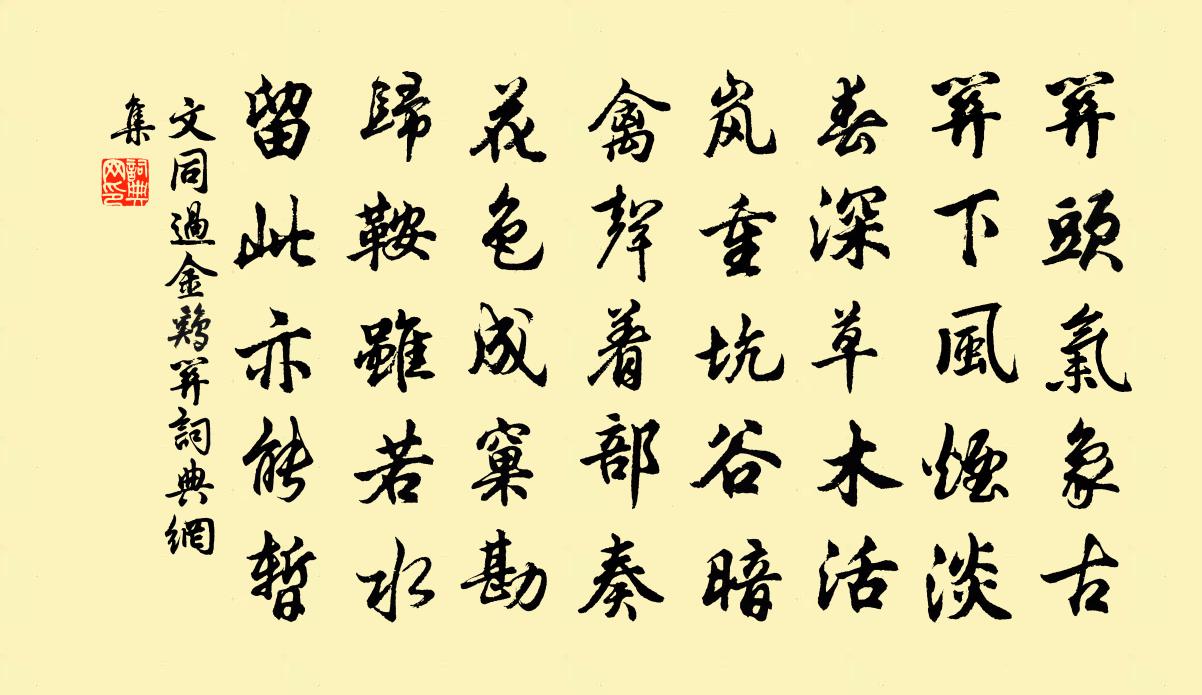 關頭氣象古
關下風煙淡
春深草木活
岚重坑谷暗
禽聲着部奏
花色成窠勘
歸鞍雖若水
留此亦能暫
文同過金鷄關詞典網
集
詞典网印